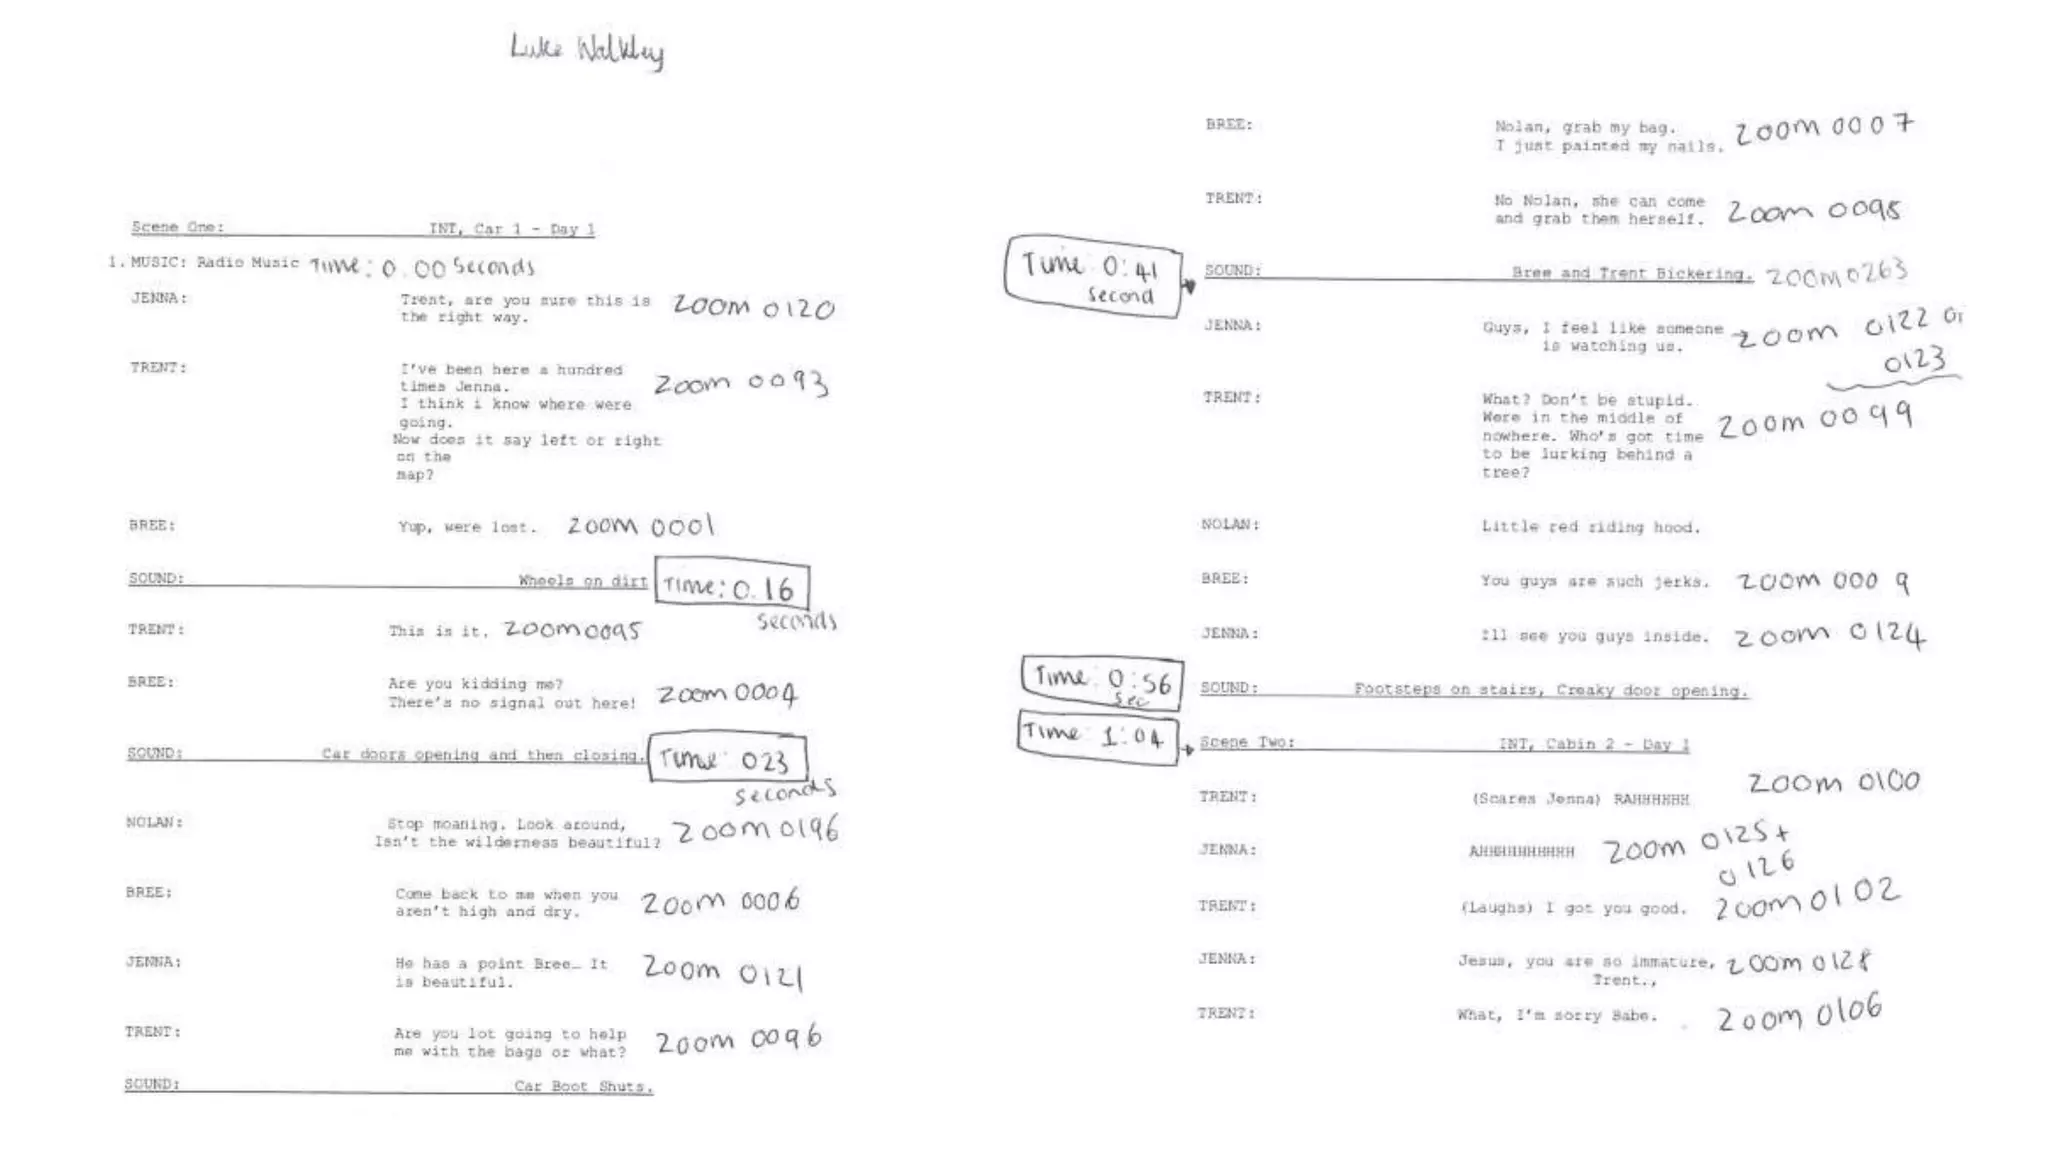 Luke Walkley
Scene One: INT, Car 1 - Day 1
1. MUSIC: Radio Music Time: 0.00 Seconds
JENNA: Trent, are you sure this is zoom 0120
the right way.
TRENT: I've been here a hundred
times Jenna. zoom 0093
I think i know where were
going.
Now does it say left or right
on the
map?
BREE: Yup, were lost. zoom 0001
SOUND: Wheels on dirt Time: 0.16
seconds
TRENT: This is it. zoom 0095
BREE: Are you kidding me?
There's no signal out here! zoom 0004
SOUND: Car doors opening and then closing. Time: 023
seconds
NOLAN: Stop moaning. Look around,
Isn't the wilderness beautiful? zoom 0196
BREE: Come back to me when you
aren't high and dry. zoom 0006
JENNA: He has a point Bree… It zoom 0121
is beautiful.
TRENT: Are you lot going to help
me with the bags or what? zoom 0096
SOUND: Car Boot Shuts.
BREE: Nolan, grab my bag. zoom 0007
I just painted my nails.
TRENT: No Nolan, she can come
and grab them herself. zoom 0098
Time: 0:41
second
SOUND: Bree and Trent Bickering. zoom 0263
JENNA: Guys, I feel like someone zoom 0122 or
is watching us. 0123
TRENT: What? Don't be stupid.
Were in the middle of zoom 0099
nowhere. Who's got time
to be lurking behind a
tree?
NOLAN: Little red riding hood.
BREE: You guys are such jerks. zoom 0009
JENNA: Ill see you guys inside. zoom 0124
Time: 0:56
sec
SOUND: Footsteps on stairs, Creaky door opening.
Time: 1:04
Scene Two: INT, Cabin 2 - Day 1
TRENT: (Scares Jenna) RAHHHHHH zoom 0100
JENNA: AHHHHHHHHHHH zoom 0125 +
0126
TRENT: (Laughs) I got you good. zoom 0102
JENNA: Jesus, you are so immature, zoom 0128
Trent.,
TRENT: What, I'm sorry Babe. zoom 0106